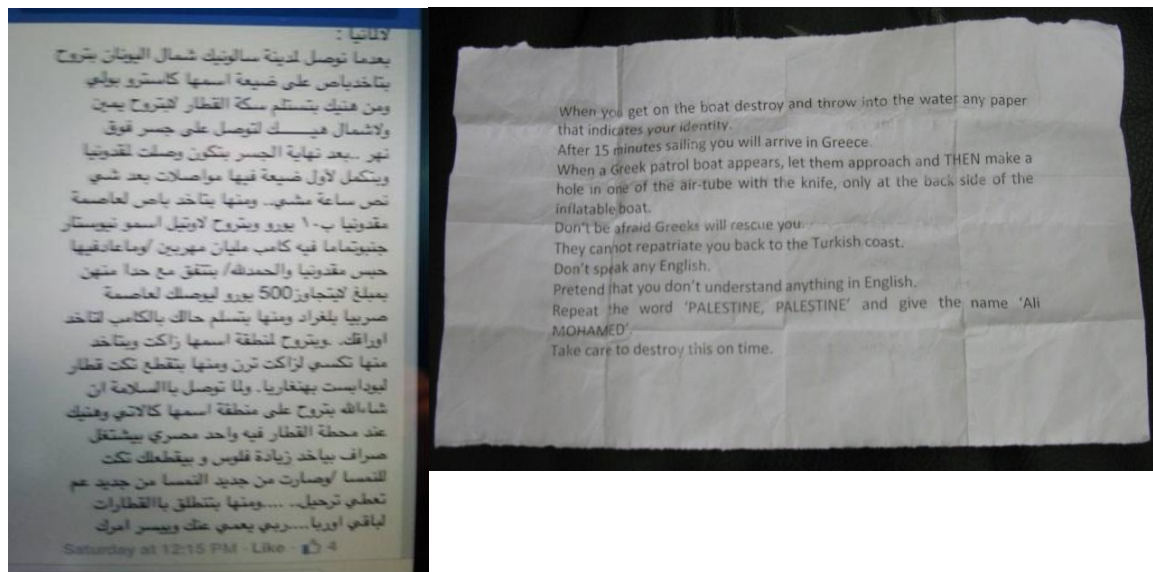 لالمانيا :
بعدما توصل لمدينة سالونيك شمال اليونان بتروح
بتاخدباص على ضيعة اسمها كاسترو بولي
ومن هنيك بتستلم سكة القطار لابتروح يمين
ولاشمال هيــــك لتوصل على جسر فوق
نهر ..بعد نهاية الجسر بتكون وصلت لقدونيا
وبتكمل لاول ضيعة فيها مواصلات بعد شي
نص ساعة مشي.. ومنها بتاخد باص لعاصمة
مقدونيا ب١٠ يورو وبتروح لاوتيل اسمو نيوستار
جنبوتماما فيه كامب مليان مهربين /وماعادفيها
حبس مقدونيا والحمدلله/ بتتفق مع حدا منهن
بمبلغ لايتجاوز500 يورو ليوصلك لعاصمة
صربيا بلغراد ومنها بتسلم حالك بالكامب لتاخد
اوراقك. .وبتروح لمنطقة اسمها زاكت وبتاخد
منها تكسي لزاكت ترن ومنها بتقطع تكت قطار
لبودابست بهنغاريا. ولما توصل باالسلامة ان
شاءالله بتروح على منطقة اسمها كالاتي وهنيك
عند محطة القطار فيه واحد مصري بيشتغل
صراف بياخد زيادة فلوس و بيقطعلك تكت
للنمسا /وصارت من جديد النمسا من جديد عم
تعطي ترحيل.. ....ومنها بتنطلق باالقطارات
لباقي اوربا....ربي يعمي عنك وييسر امرك
Saturday at 12:15 PM · Like · 4
When you get on the boat destroy and throw into the water any paper
that indicates your identity.
After 15 minutes sailing you will arrive in Greece.
When a Greek patrol boat appears, let them approach and THEN make a
hole in one of the air-tube with the knife, only at the back side of the
inflatable boat.
Don't be afraid Greeks will rescue you.
They cannot repatriate you back to the Turkish coast.
Don't speak any English.
Pretend that you don't understand anything in English.
Repeat the word 'PALESTINE, PALESTINE' and give the name 'Ali
MOHAMED'.
Take care to destroy this on time.